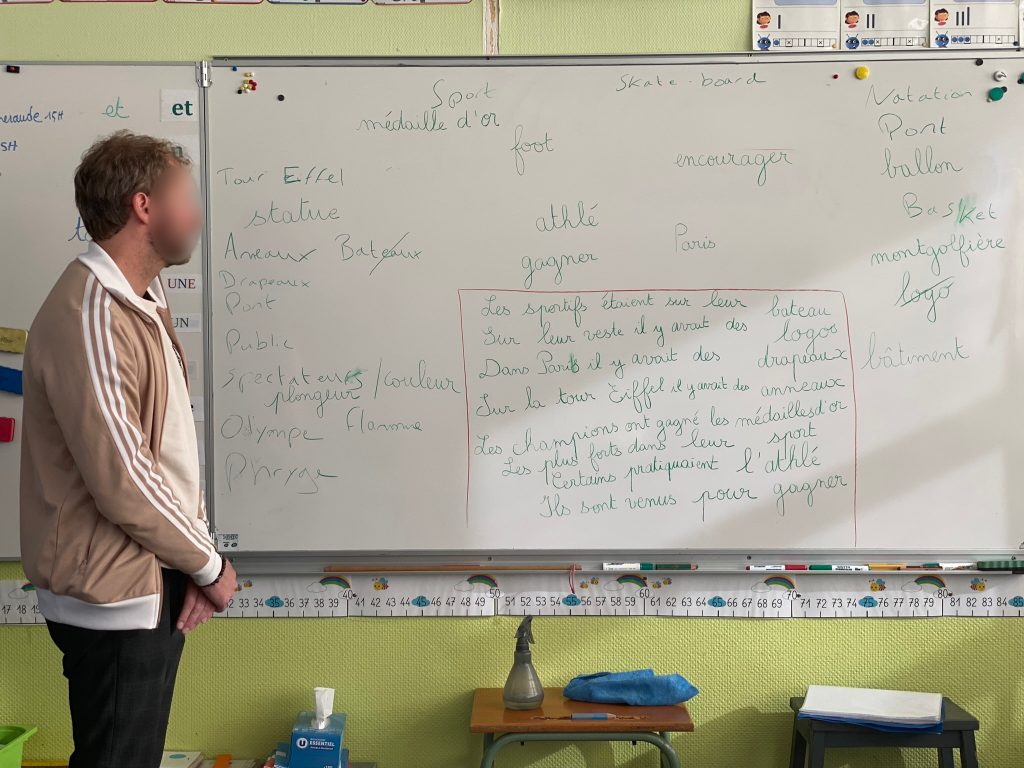 et
et
meraude 15H
5H
UNE
UN
Sport
Skate-board
médaille d'or
foot
encourager
Natation
Pont
ballon
Tour Eiffel
statue
athlé
Basket
Anneaux Bateaux
gagner
Paris
montgolfière
Drapeaux
Pont
logo
Public
bâtiment
spectateurs / couleur
plongeur
Olympe Flamme
Phryge
Les sportifs étaient sur leur bateau
Sur leur veste il y avait des logos
Dans Paris il y avait des drapeaux
Sur la tour Eiffel il y avait des anneaux
Les champions ont gagné les médailles d'or
Les plus forts dans leur sport
Certains pratiquaient l'athlé
Ils sont venus pour gagner
17 18 19
32 33 34 35 36 37 38 39 40 41 42 43 44 45 46 47 48 49 50 51 52 53 54 55 56 57 58 59 60 61 62 63 64 65 66 67 68 69 70 71 72 73 74 75 76 77 78 79 80 81 82 83 84 85
U
ESSENTIEL